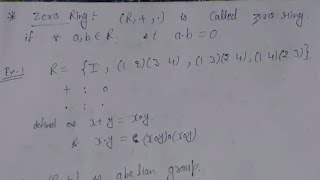 * Zero Ring:- (R, +, ·) is called zero ring.
if ∀ a,b ∈ R. a·b = 0
Ex-1 R = {I, (1 2)(3 4), (1 3)(2 4), (1 4)(2 3)}
+ : 0
· :
defined as x+y = x∘y
& x·y = (x∘y)∘(x∘y)
is abelian group.